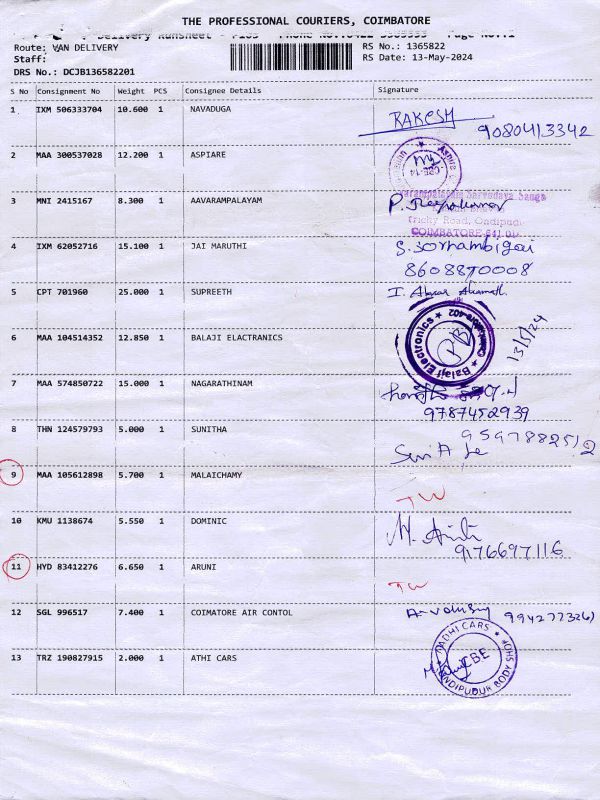 THE PROFESSIONAL COURIERS, COIMBATORE
Delivery Runsheet
Route: VAN DELIVERY
RS No.: 1365822
Staff:
RS Date: 13-May-2024
DRS No.: DCJB136582201
S No Consignment No Weight PCS Consignee Details Signature
1 IXM 506333704 10.600 1 NAVADUGA RAKESH
9080413342
2 MAA 300537028 12.200 1 ASPIARE
3 MNI 2415167 8.300 1 AAVARAMPALAYAM
Trichy Road, Ondipudur
COIMBATORE-641 01
4 IXM 62052716 15.100 1 JAI MARUTHI
8608870008
5 CPT 701960 25.000 1 SUPREETH
6 MAA 104514352 12.850 1 BALAJI ELACTRANICS
★ Balaji Electronics ★
13/5/24
7 MAA 574850722 15.000 1 NAGARATHINAM
9787452939
8 THN 124579793 5.000 1 SUNITHA
9597882512
9 MAA 105612898 5.700 1 MALAICHAMY TW
10 KMU 1138674 5.550 1 DOMINIC
9176697116
11 HYD 83412276 6.650 1 ARUNI TW
12 SGL 996517 7.400 1 COIMATORE AIR CONTOL
13 TRZ 190827915 2.000 1 ATHI CARS
CBE